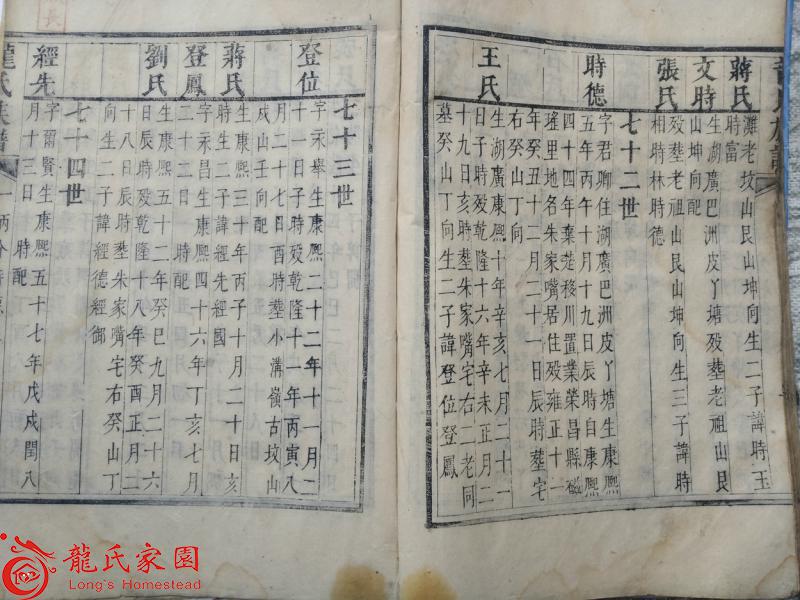 蔣氏 灘老坟山艮山坤向生二子諱時玉
時富
文時 生湖廣巴洲皮丫塘殁塟老祖山艮
山坤向配
張氏 殁塟老祖山艮山坤向生三子諱時
相時林時德
七十二世
時德 字君卿住湖廣巴洲皮丫塘生康熙
五年丙午十月十九日辰時自康熙
四十四年棄楚移川置業榮昌縣磁
瑤里地名朱家嘴居住殁雍正十一
年癸丑十二月二十一日辰時塟宅
右癸山丁向
王氏 生湖廣康熙十年辛亥七月二十一
日子時殁乾隆十六年辛未正月二
十九日亥時塟朱家嘴宅右二老同
墓癸山丁向生二子諱登位登鳳
七十三世
登位 字永舉生康熙二十二年十一月二
十一日子時殁乾隆十一年丙寅八
月二十七日酉時塟小溝嶺古坟山
戌山壬向配
蔣氏 生康熙三十年丙子十月二十日亥
時生二子諱經先經國
登鳳 字永昌生康熙四十六年丁亥七月
二十二日 時配
劉氏 生康熙五十二年癸巳九月二十六
日辰時殁乾隆十八年癸酉正月二
十八日辰時塟朱家嘴宅右癸山丁
向生二子諱經德經御
七十四世
經先 字爾賢生康熙五十七年戊戌閏八
月十三日 時配
龍氏族譜
龍氏家園
Long's Homestead